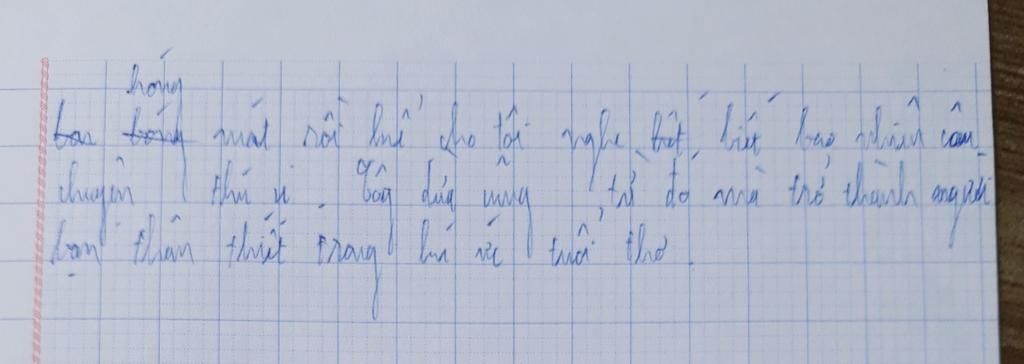 hóng
mát rồi kể cho tôi nghe biết bao nhiêu câu
chuyện thú vị. dừa cũng từ đó mà trở thành người
bạn thân thiết trong kí ức tuổi thơ.